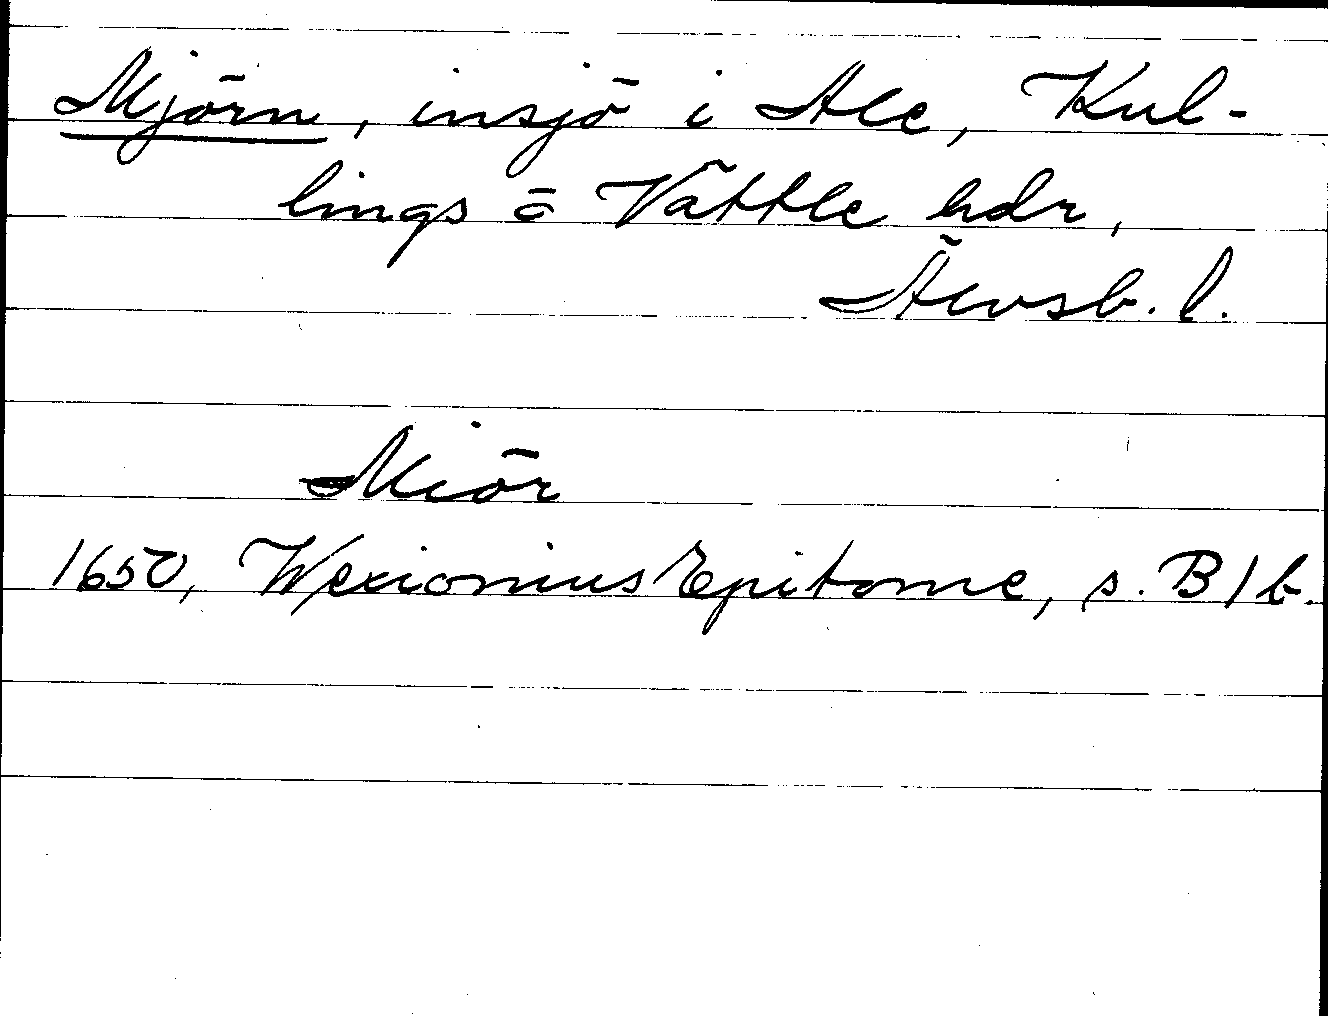 Mjörn, insjö i Ale, Kul-
lings o Vättle hdr,
Älvsb. l.
Miör
1650, Wexionius Epitome, s. B1b.